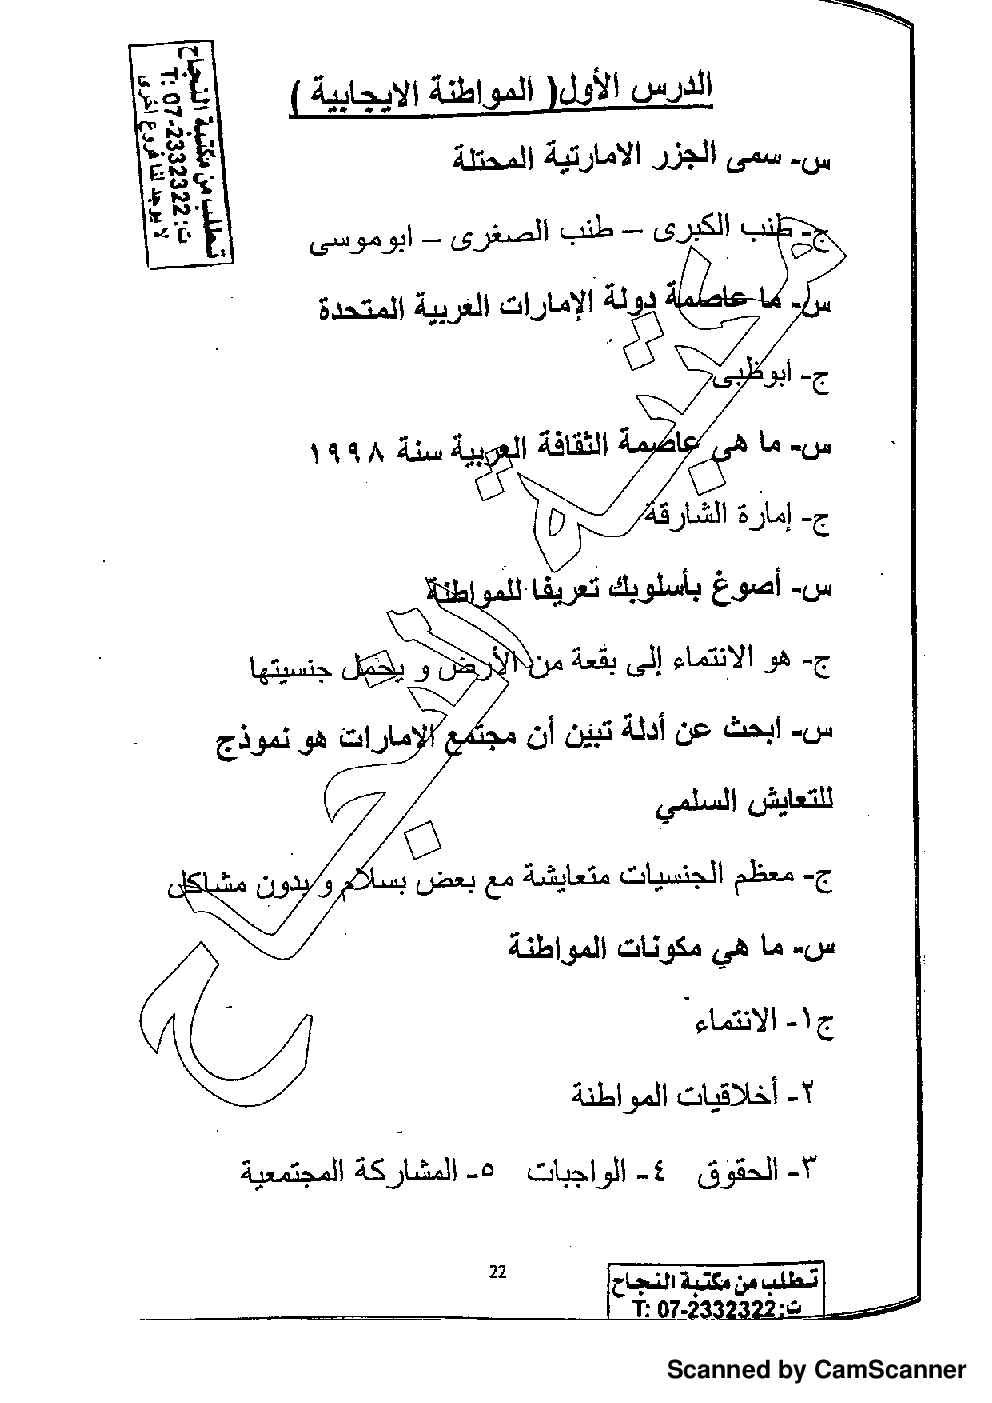 تطلب من مكتبة النجاح
ت: T: 07-2332322
لا يوجد لنا فروع اخرى
الدرس الأول( المواطنة الايجابية )
س- سمى الجزر الامارتية المحتلة
ج- طنب الكبرى – طنب الصغرى – ابوموسى
س- ما عاصمة دولة الإمارات العربية المتحدة
ج- ابوظبى
س- ما هى عاصمة الثقافة العربية سنة ١٩٩٨
ج- إمارة الشارقة
س- أصوغ بأسلوبك تعريفا للمواطنة
ج- هو الانتماء إلى بقعة من الأرض و يحمل جنسيتها
س- ابحث عن أدلة تبين أن مجتمع الامارات هو نموذج
للتعايش السلمي
ج- معظم الجنسيات متعايشة مع بعض بسلام و بدون مشاكل
س- ما هي مكونات المواطنة
ج١- الانتماء
٢- أخلاقيات المواطنة
٣- الحقوق ٤- الواجبات ٥- المشاركة المجتمعية
مكتبة
النجاح
22
تطلب من مكتبة النجاح
ت: T: 07-2332322
Scanned by CamScanner